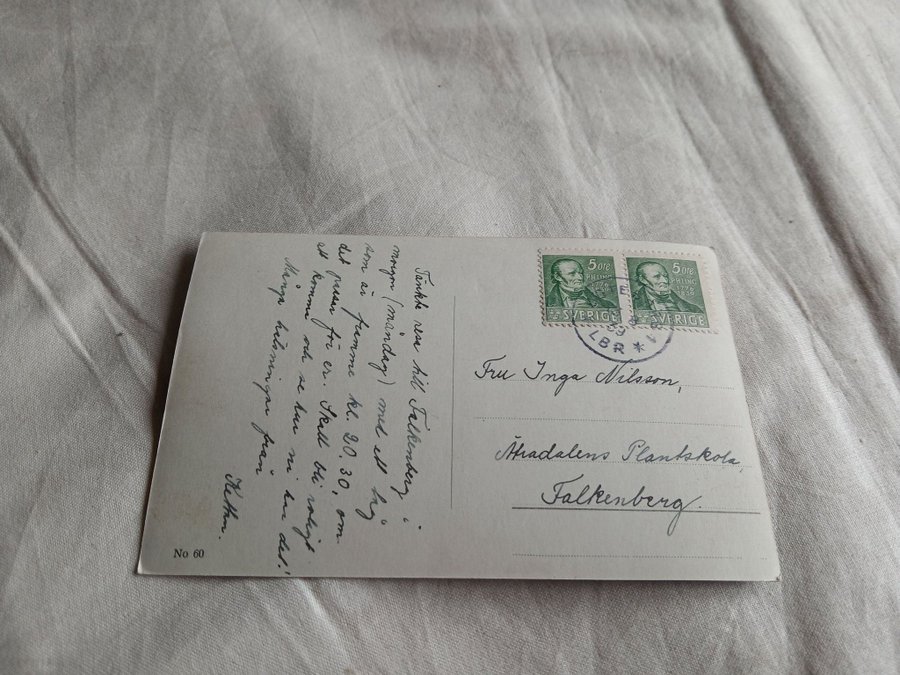 Tänkte resa till Falkenberg i
morgon (måndag) med ett tåg
som är framme kl. 20.30, om
det passar för er. Skall bli roligt
att komma och se hur ni har det!
Många hälsningar från
No 60
5 ÖRE
P.H. LING
1776
SVERIGE
5 ÖRE
P.H. LING
1776
SVERIGE
LBR
Fru Inga Nilsson,
Ätradalens Plantskola,
Falkenberg.